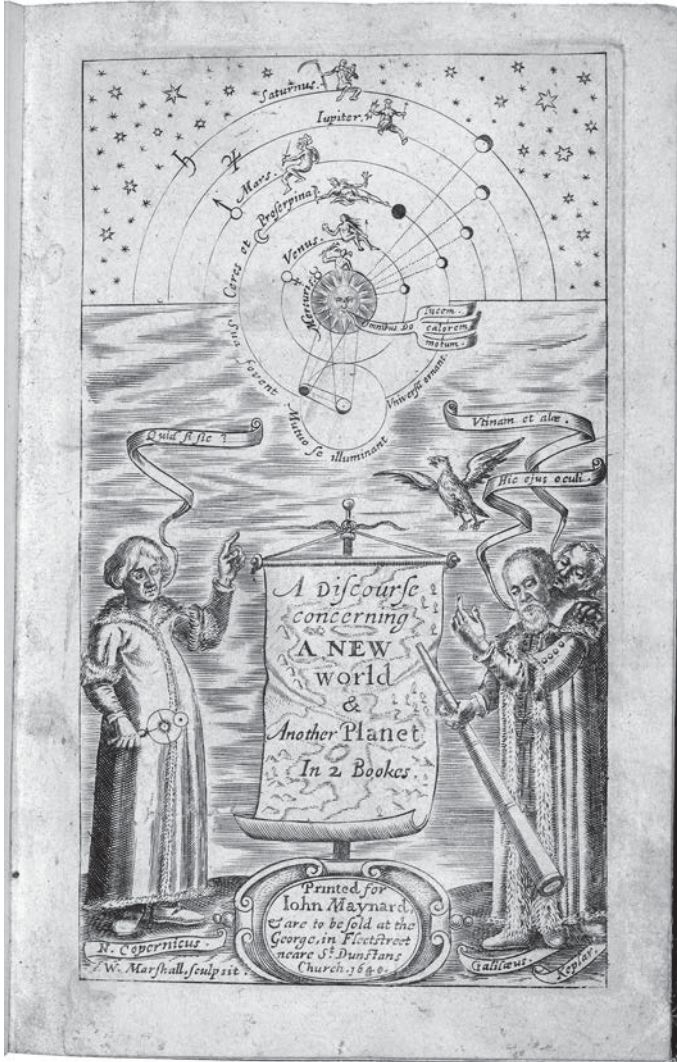 Saturnus.
Iupiter.
♄
♃
Mars.
Proserpina
Ceres et
Venus.
Mercurius.
Omnibus Do
lucem.
calorem
motum.
Quasi fovent
Mutuo se illuminant
Vniversū ornant.
Quid si sic?
Vtinam et alæ.
Hic ejus oculi.
A Discourse
concerning
A NEW
world
&
Another Planet
In 2 Bookes.
Printed for
Iohn Maynard,
& are to be sold at the
George, in Fleetstreet
neare St. Dunstans
Church. 1640.
N. Copernicus.
W. Marshall, sculpsit.
Galilæus.
Keplar.